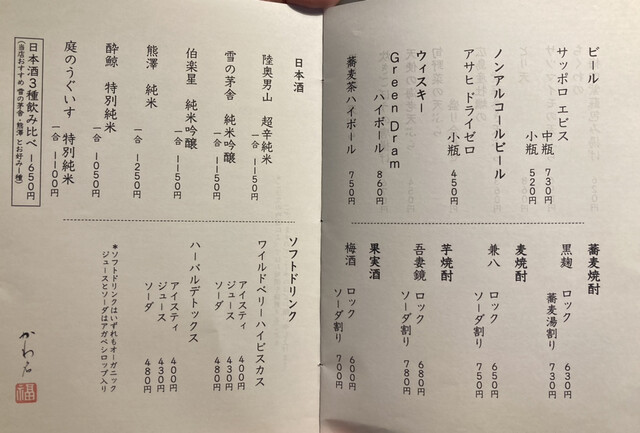 ビール
サッポロ エビス
中瓶 730円
小瓶 520円
ノンアルコールビール
アサヒ ドライゼロ
小瓶 450円
ウィスキー
Green Dram
ハイボール 860円
蕎麦茶ハイボール 750円
蕎麦焼酎
黒麹 ロック 630円
蕎麦湯割り 730円
麦焼酎
兼八 ロック 650円
ソーダ割り 750円
芋焼酎
吾妻鏡 ロック 680円
ソーダ割り 780円
果実酒
梅酒 ロック 600円
ソーダ割り 700円
日本酒
陸奥男山 超辛純米
一合 1150円
雪の茅舎 純米吟醸
一合 1150円
伯楽星 純米吟醸
一合 1150円
熊澤 純米
一合 1250円
酔鯨 特別純米
一合 1050円
庭のうぐいす 特別純米
一合 1100円
日本酒3種飲み比べ 1650円
(当店おすすめ 雪の茅舎・熊澤 とお好み一種)
ソフトドリンク
ワイルドベリーハイビスカス
アイスティ 400円
ジュース 430円
ソーダ 480円
ハーバルデトックス
アイスティ 400円
ジュース 430円
ソーダ 480円
*ソフトドリンクはいずれもオーガニック
ジュースとソーダはアガベシロップ入り
福